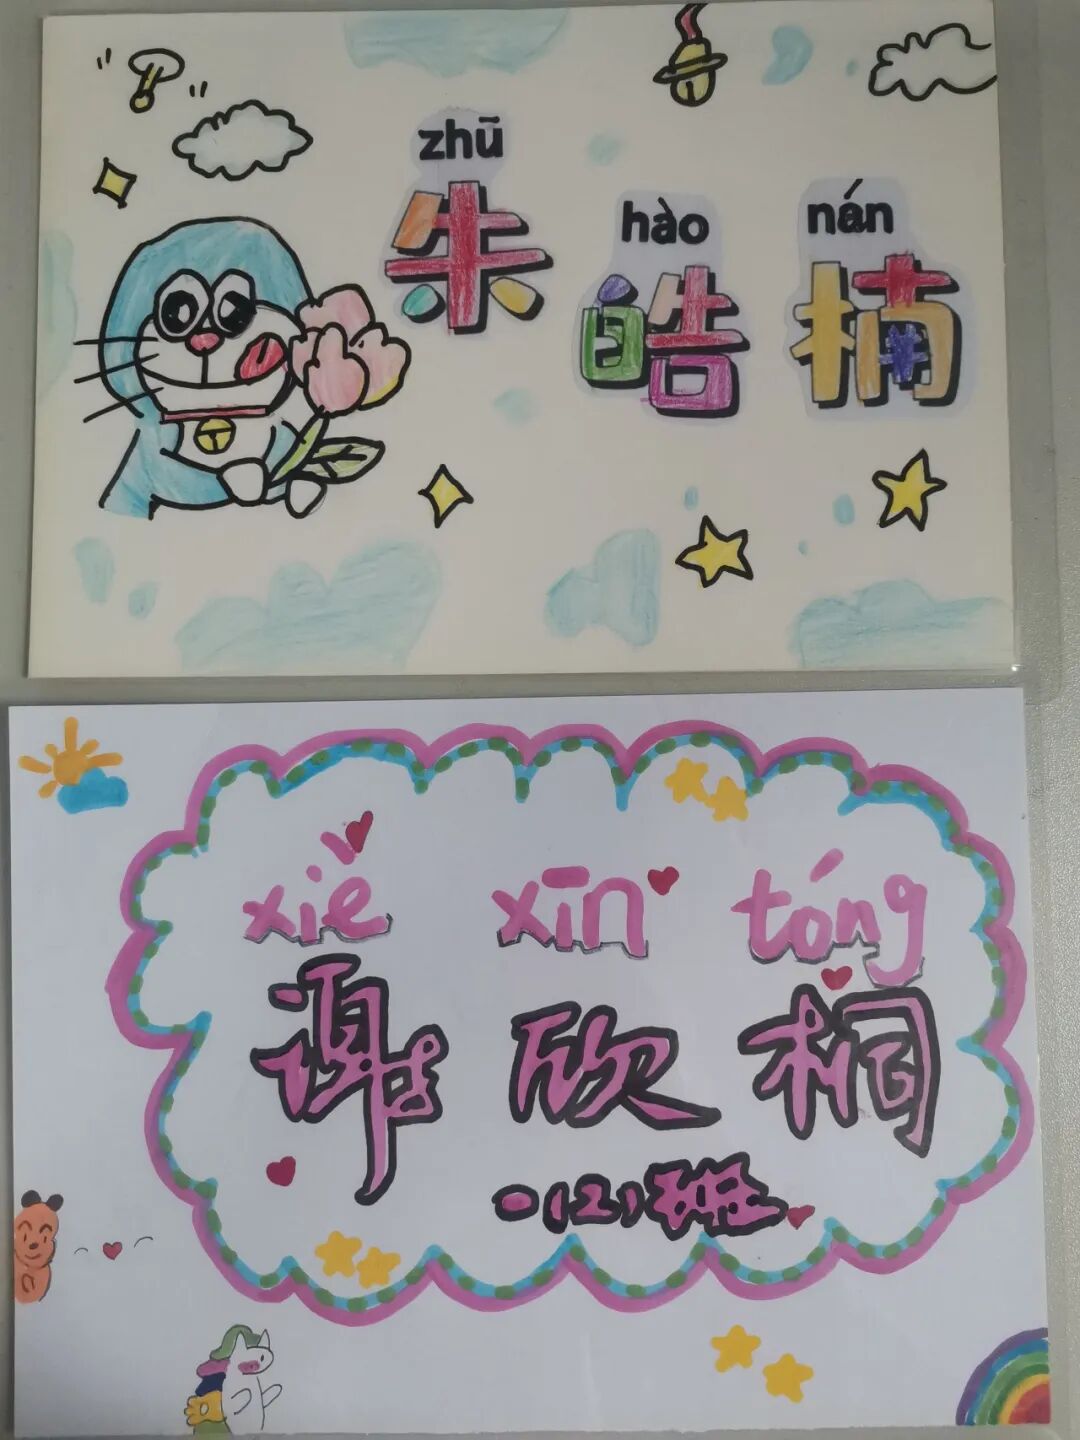 zhū
朱
hào nán
皓楠
xiè xīn tóng
谢欣桐
一(2)班